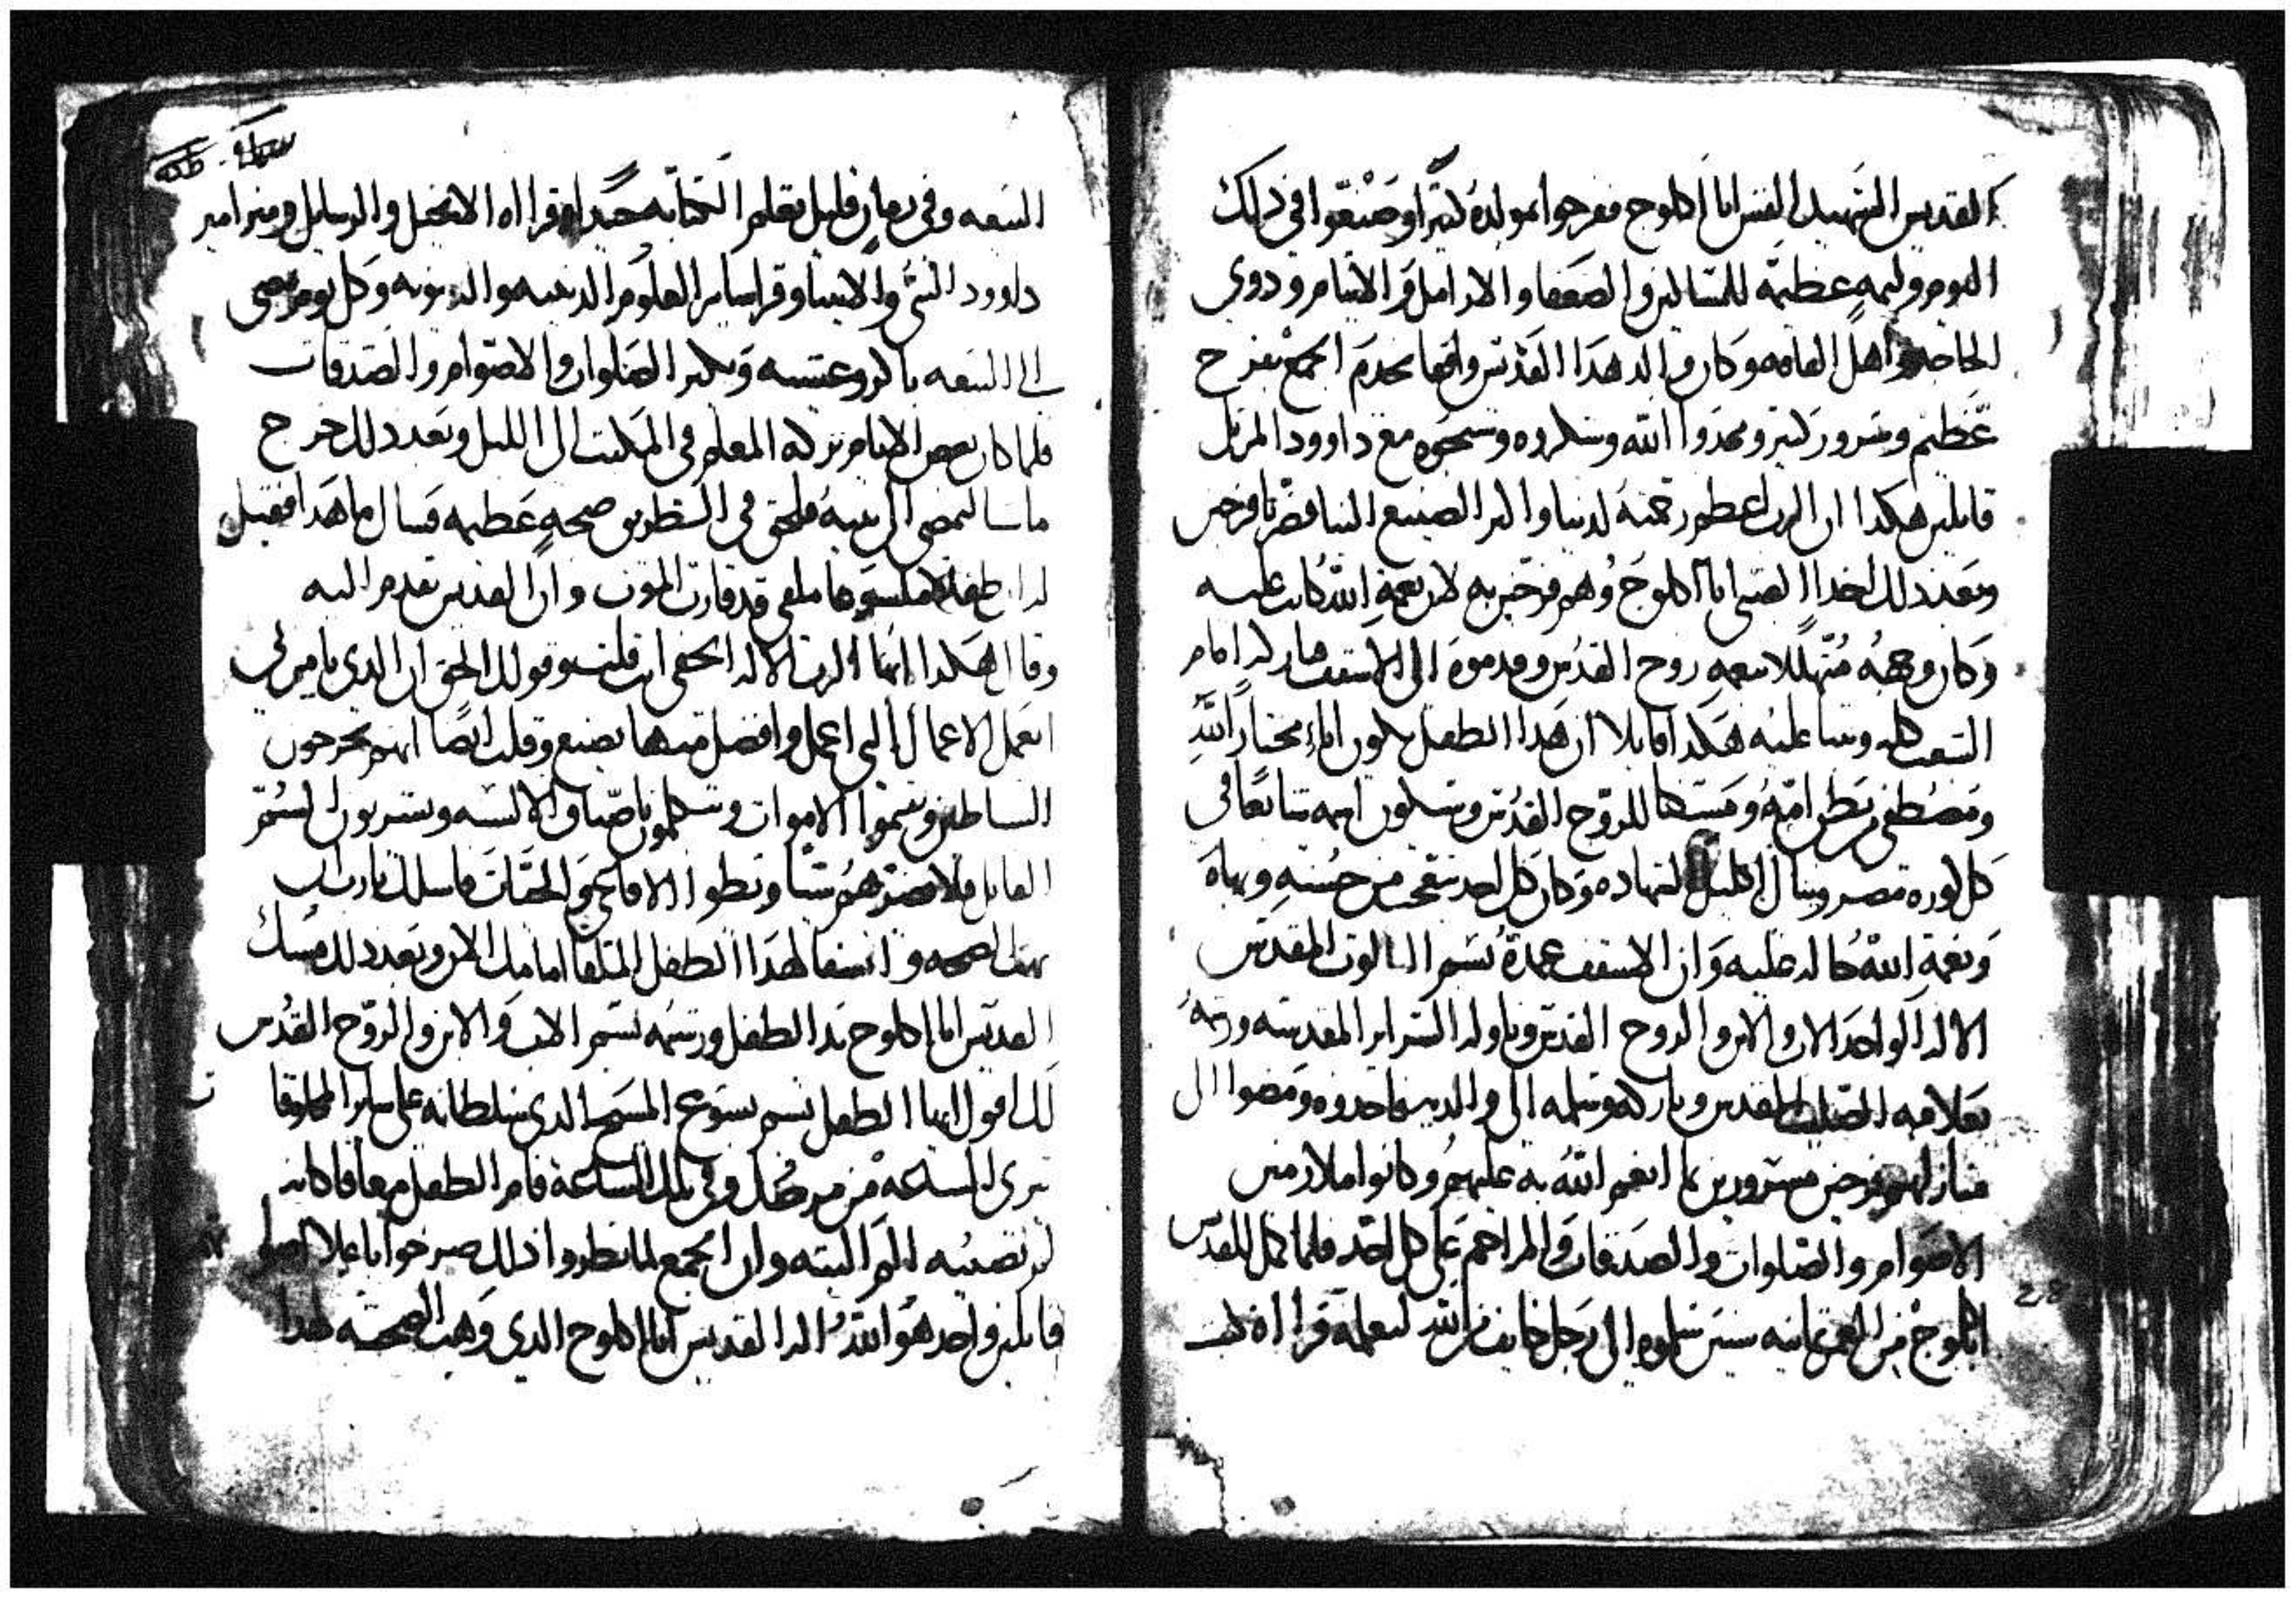 القديس الشهيد القس ابا اكلوج ففرحوا بمولده كثيرا وصنعوا في ذلك
اليوم وليمه عظيمه للمساكين والضعفا والارامل والايتام ودوي
الحاجه واهل الفاقه وكان والد هذا القديس واقفا يخدم الجمع بفرح
عظيم وسرور كبير ومجدوا الله وشكروه وسبحوه مع داوود المرتل
قايلين هكدا ان الرب اعظم رحمته لدينا واكثر الصنيع الينا فصرنا فرحين
وبعد دلك اخدوا الصبي ابا اكلوج وهم فرحين به لان نعمة الله كانت عليه
وكان وجهه متهللا بنعمه روح القدس وقدموه الى الاسقف امام
الشعب كله وتنبا عليه هكدا قايلا ان هدا الطفل يكون انا مختارا لله
ومصطفى من بطن امه ومسكنا للروح القدس ويكون اسمه شايعا في
كل كورة مصر وينال اكليل الشهاده وكان كل احد يتعجب من حسنه وبهاه
ونعمة الله حاله عليه وان الاسقف عمده بسم الثالوث المقدس
الاله الواحد الاب والابن والروح القدس وناوله السراير المقدسه ورشمه
بعلامه الصليب المقدس وباركه وسلمه الى والديه فاخدوه ومضوا الى
منازلهم فرحين مسرورين بما انعم الله به عليهم وكانوا ملازمين
الاصوام والصلوات والصدقات والمراحم على كل احد فلما كمل للقديس
اكلوج من العمر ثمانيه سنين سلموه الى رجل خايف من الله ليعلمه قرااة كتب
البيعه وفي زمان قليل تعلم الكتابه جيدا وقرااه الانجيل والرسايل ومزامير
داوود النبي والانبيا وقرا ساير العلوم الدينيه والدنيويه وكل يوم يمضي
الى البيعه باكر وعشيه ويكثر الصلوات والاصوام والصدقات
فلما كان بعض الايام تركه المعلم في المكتب الى الليل وبعد دلك خرج
ماشيا ليمضي الى بيته فلحق في الطريق صيحه عظيمه فسال ما هدا فقيل
طفلا ملسوعا ملقى قد قارب الموت وان القديس تقدم اليه
وقال هكدا ايها الرب الاله الحقيقي انت قلت وقولك الحق ان الدي يامن بي
يعمل الاعمال التي اعمل وافضل منها يصنع وقلت ايضا انهم يخرجون
الشياطين ويقيموا الاموات ويتكلمون باصناف الالسنه ويشربون السم
القاتل فلا يضرهم شيا ويطوا الافاعي والحيات فاسلك يارب ان
تهب الصحه والشفا لهدا الطفل الملقا امامك الان وبعد دلك مسك
القديس ابا اكلوج يد الطفل ورشمه بسم الاب والابن والروح القدس
لك اقول ايها الطفل بسم يسوع المسيح الدي سلطانه على ساير المخلوقات
تبرى الساعه من مرضك وفي تلك الساعة قام الطفل معافا كانه
لم تصيبه الم البته وان الجمع لما نظروا دلك صرخوا باعلا اصواتهم
قايلين واحد هو الله اله القديس ابا اكلوج الدي وهب الصحه لهدا